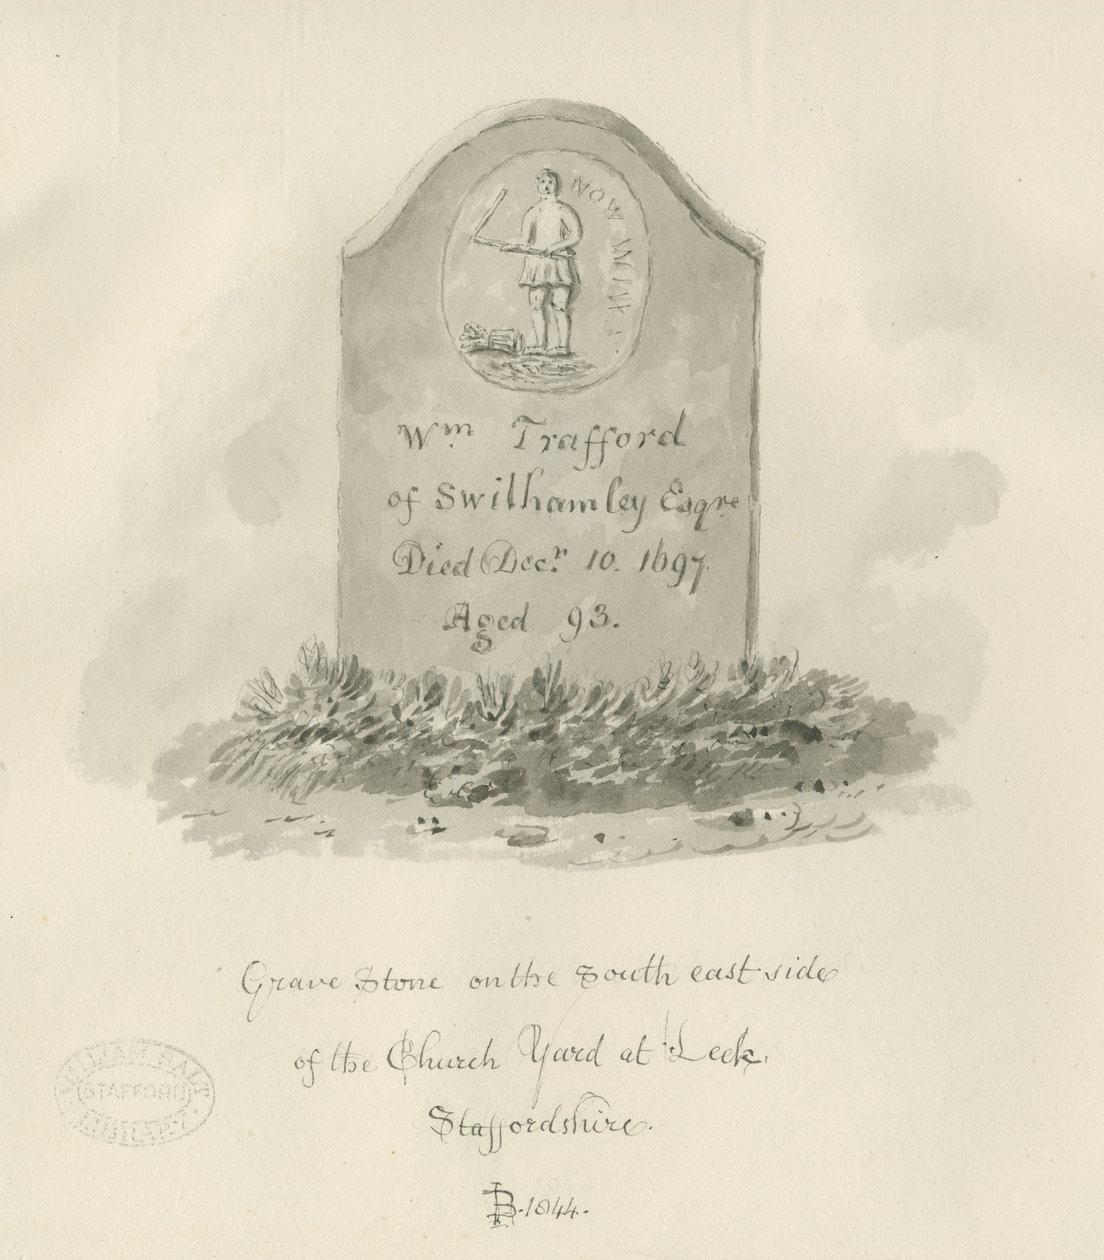 NOW WITHIN
Wm Trafford
of Swilhamley Esqre
Died Decr. 10. 1697.
Aged 93.
Grave Stone on the South east side
of the Church Yard at Leek,
Staffordshire.
1844.
WILLIAM SALT
STAFFORD
LIBRARY